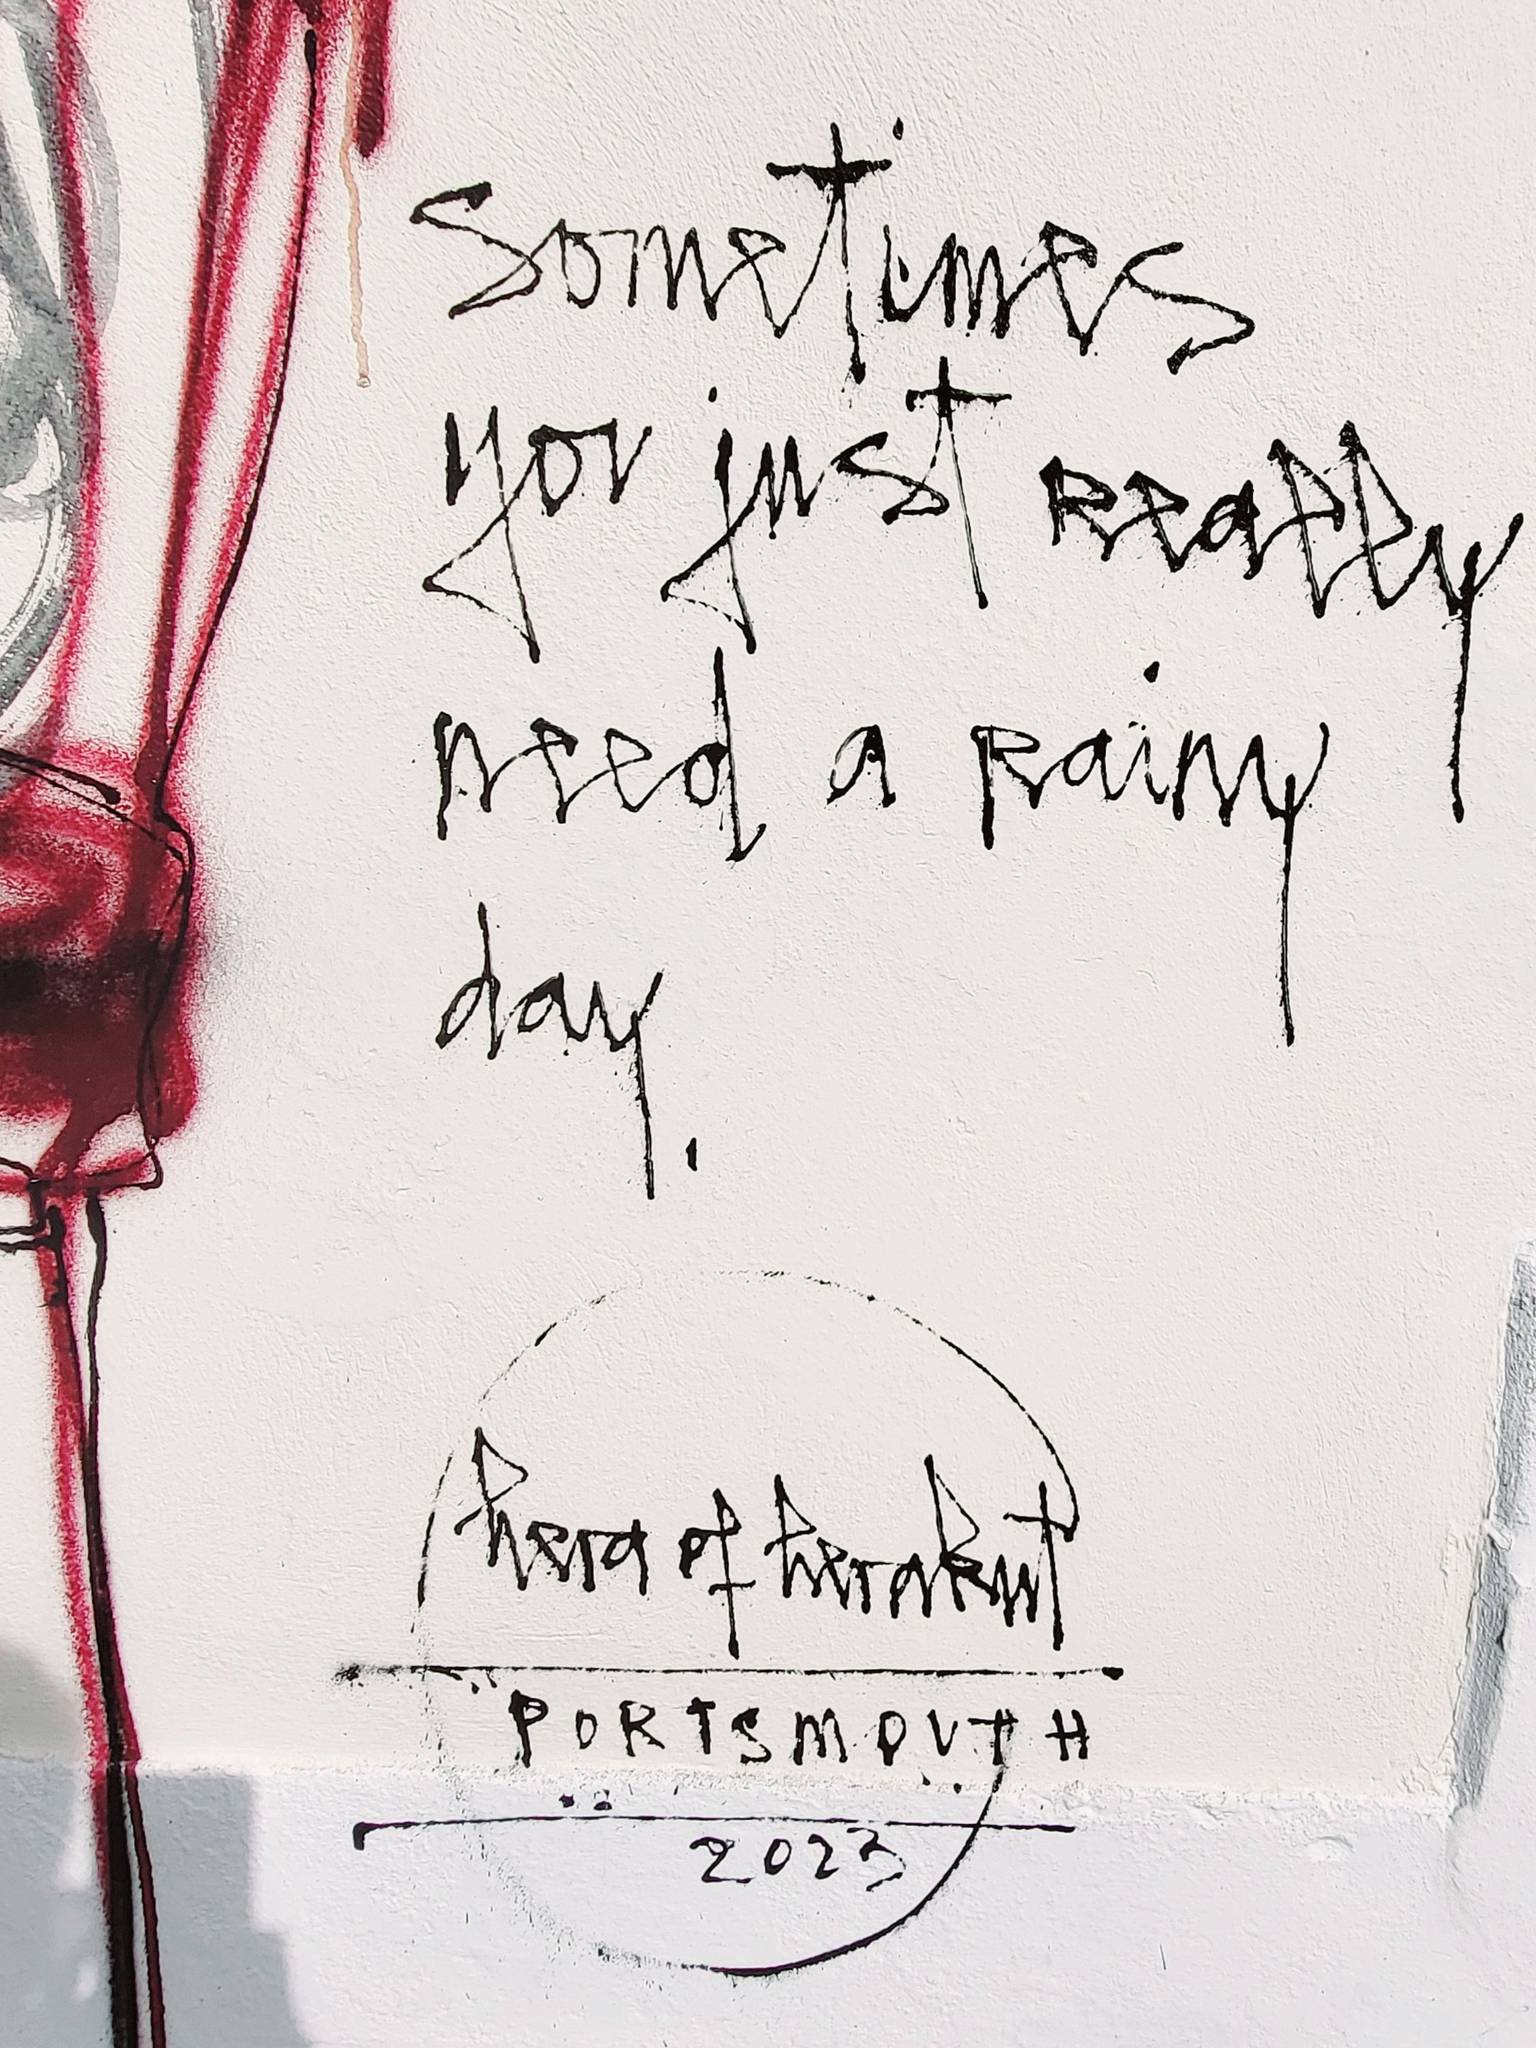 Sometimes
you just really
need a rainy
day.
hera of herakut
PORTSMOUTH
2023